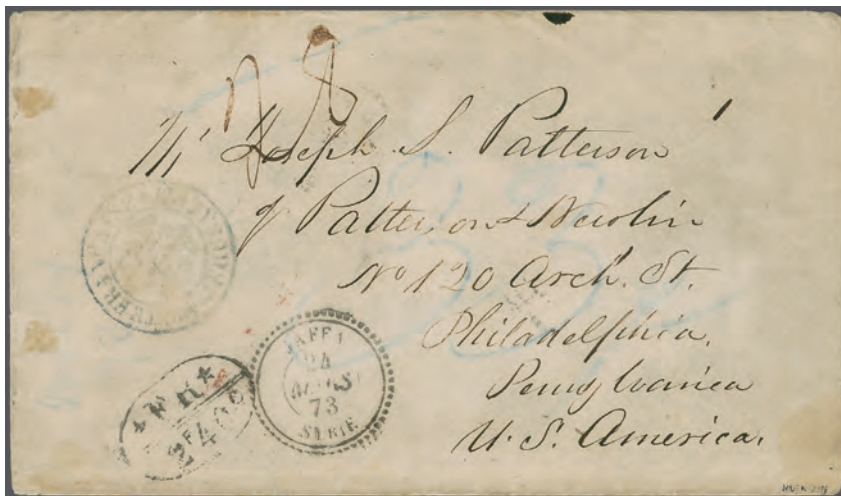 Mr Joseph S. Patterson
of Patterson & Newlin
No 120 Arch. St.
Philadelphia.
Pensylvania
U. S. America.
JAFFA
24
AOUST
73
SYRIE
2F40C